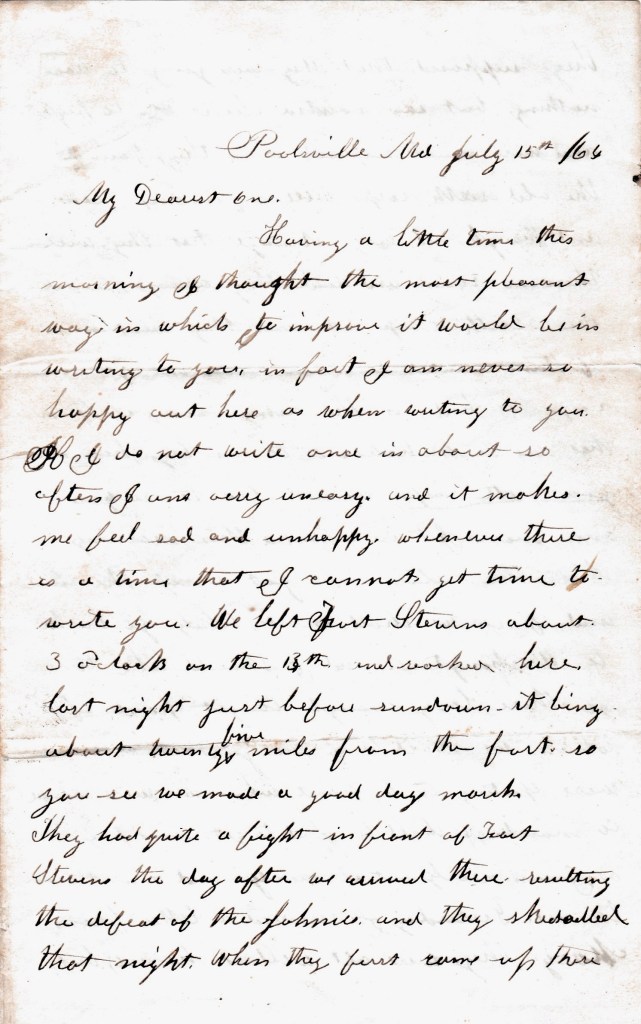 Poolsville Md July 15th /64
My Dearest one.
Having a little time this
morning I thought the most pleasant
way in which to improve it would be in
writing to you, in fact I am never so
happy out here as when writing to you.
If I do not write once in about so
often I am very uneasy. and it makes.
me feel sad and unhappy. whenever there
is a time that I cannot get time to
write you. We left Fort Steurns about.
3 o'clock on the 13th and reached here,
last night just before sundown - it bing
about twenty five miles from the fort. so
you see we made a good days march.
They had quite a fight in front of Fort
Stevens the day after we arrived there resulting
the defeat of the Johnies. and they skedadled
that night. When they first came up there